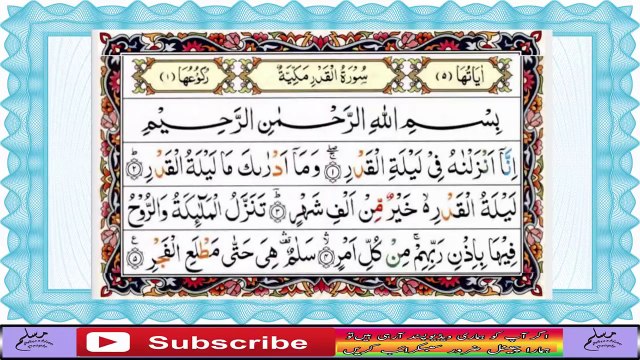 اٰيَاتُهَا (٥) سُوْرَةُ الْقَدْرِ مَكِّيَّةٌ رُكُوْعُهَا (١)
بِسْمِ اللهِ الرَّحْمٰنِ الرَّحِيْمِ
اِنَّاۤ اَنْزَلْنٰهُ فِيْ لَيْلَةِ الْقَدْرِ ۚۖ ﴿١﴾ وَمَاۤ اَدْرٰىكَ مَا لَيْلَةُ الْقَدْرِ ؕ ﴿٢﴾
لَيْلَةُ الْقَدْرِ ۙ۬ خَيْرٌ مِّنْ اَلْفِ شَهْرٍ ؕ ﴿٣﴾ تَنَزَّلُ الْمَلٰٓئِكَةُ وَالرُّوْحُ
فِيْهَا بِاِذْنِ رَبِّهِمْ ۚ مِنْ كُلِّ اَمْرٍ ۙ ﴿٤﴾ سَلٰمٌ ۛ۫ هِيَ حَتّٰى مَطْلَعِ الْفَجْرِ ﴿٥﴾
مسلم
Subscribe
اگر آپ کو ہماری ویڈیوپسند آرہی ہیں تو
ہمارا چینل ضرور سبسکرائب کریں
مسلم